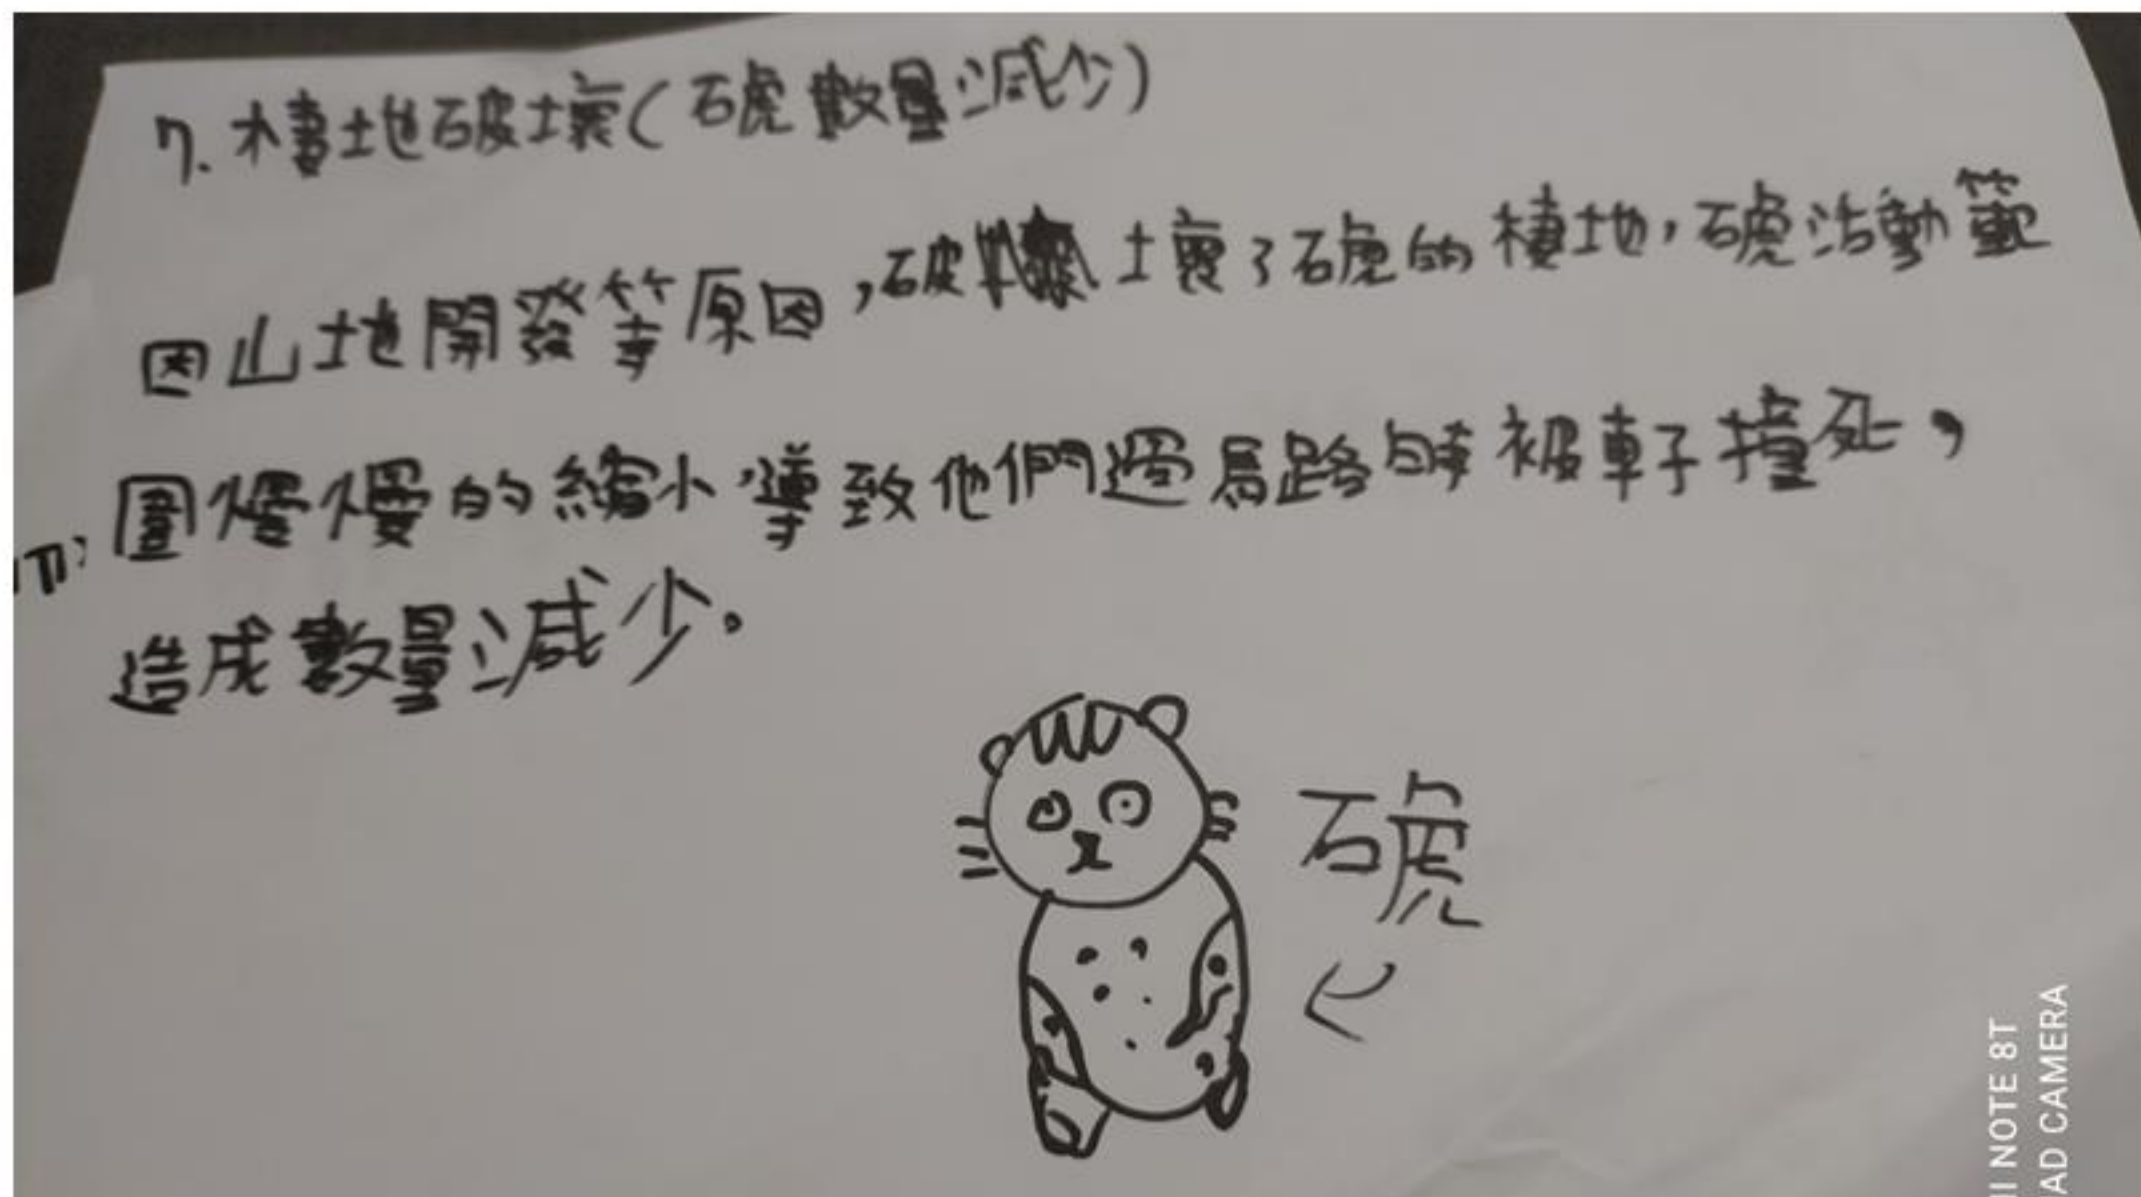 7. 棲地破壞(石虎數量減少)
因山地開發等原因,破壞了石虎的棲地,石虎活動範
圍慢慢的縮小,導致他們過馬路時被車子撞死,
造成數量減少。
石虎
I NOTE 8T
AD CAMERA